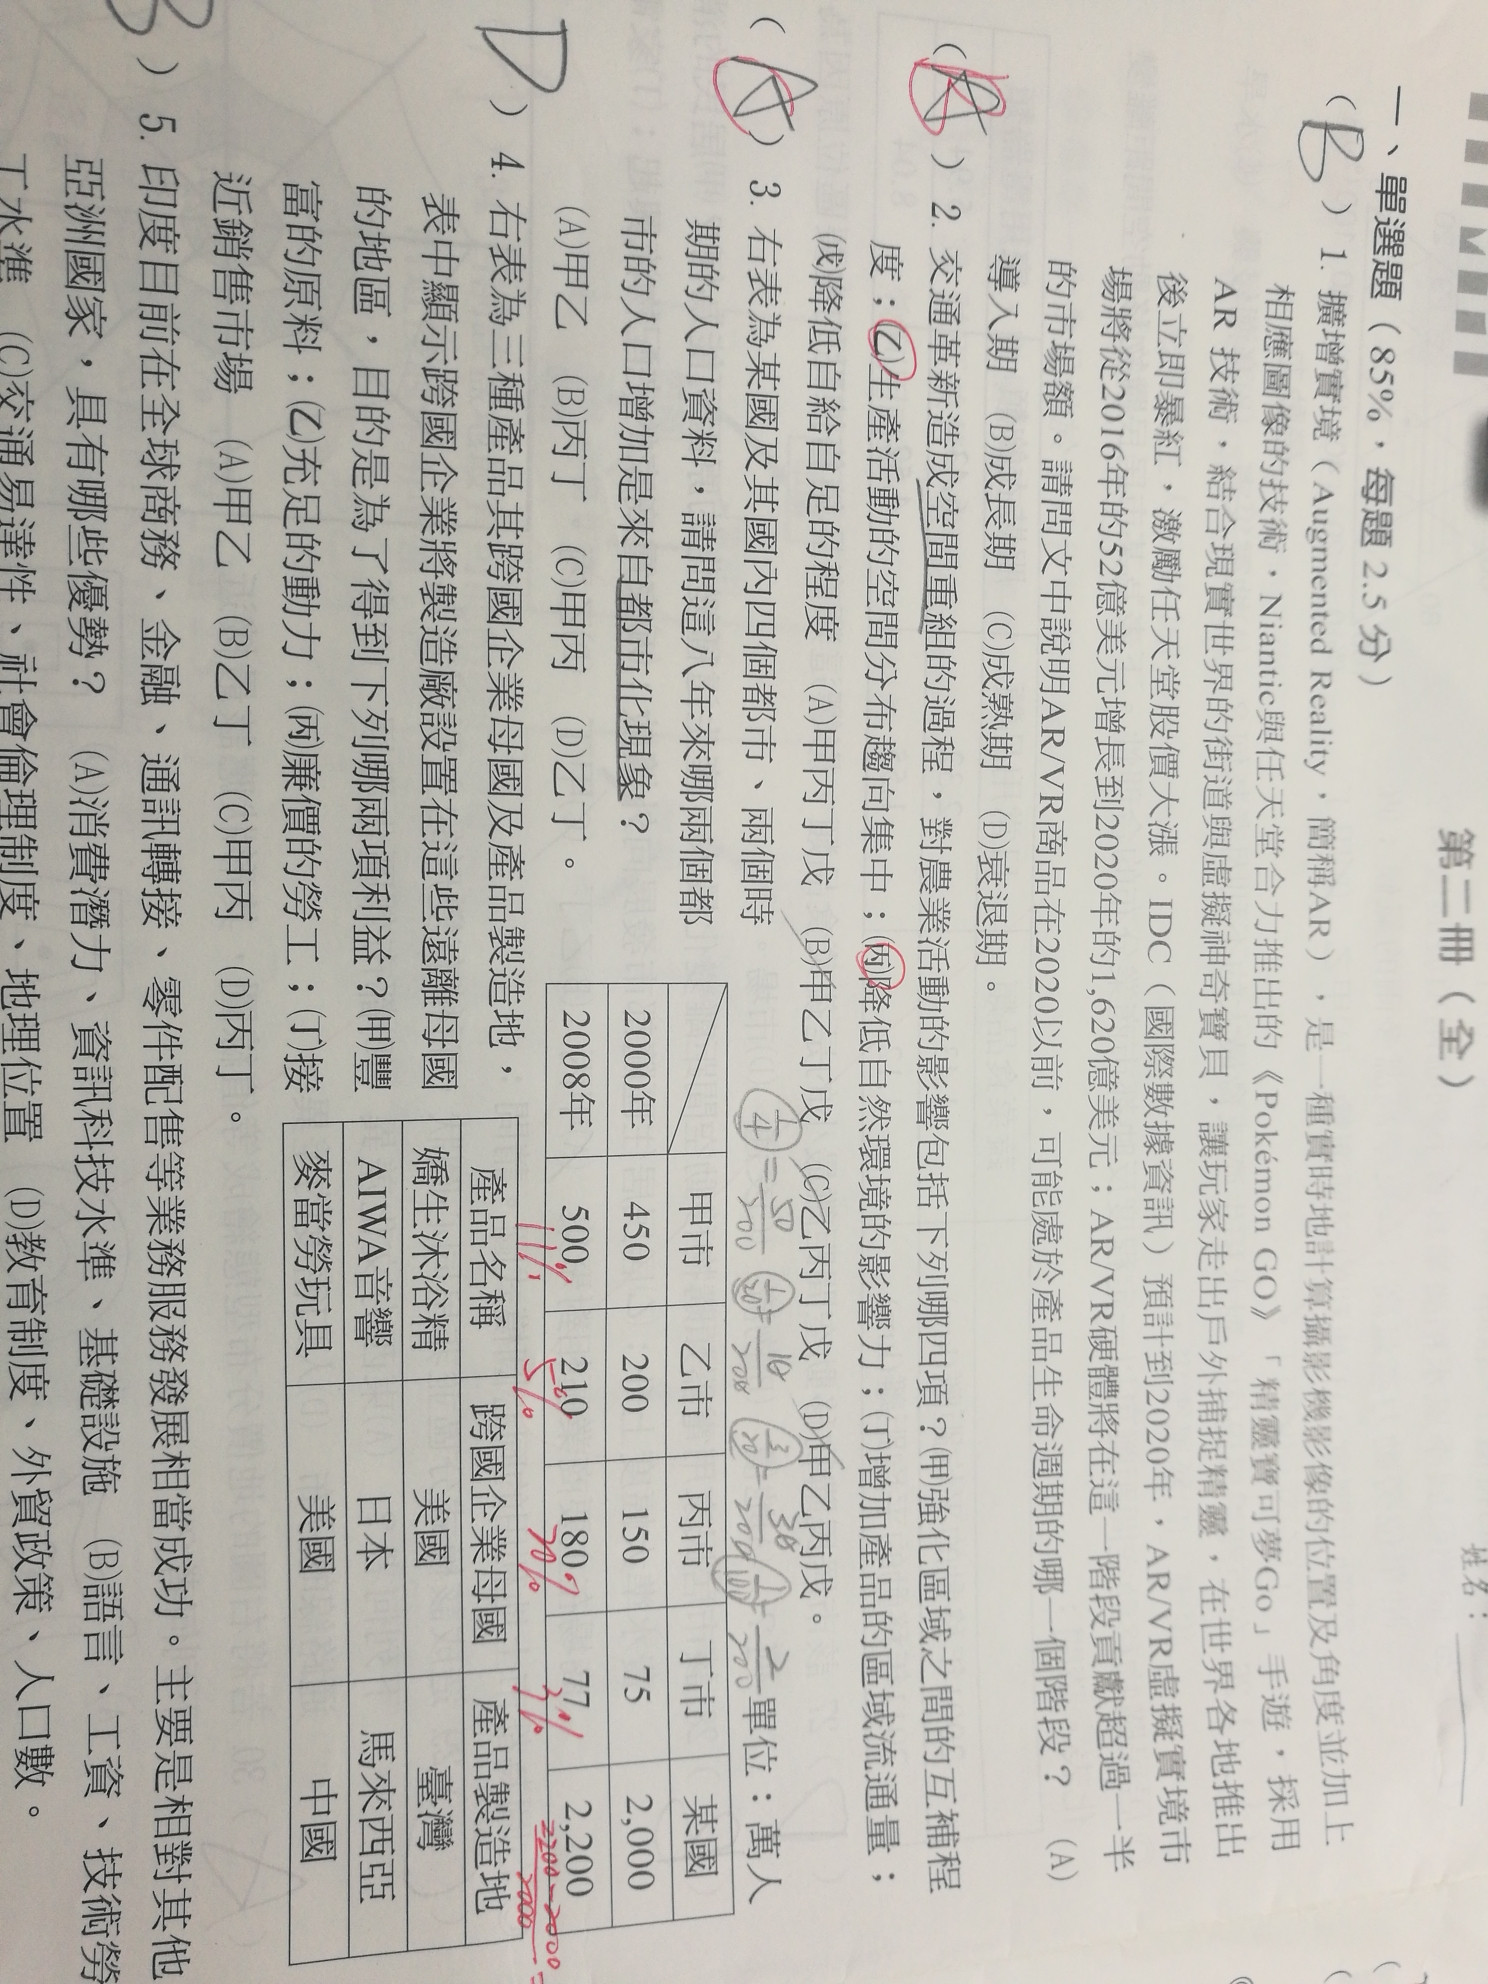 第二冊（全）
姓名：
一、單選題（85%，每題 2.5 分）
（B）1. 擴增實境（Augmented Reality，簡稱AR），是一種實時地計算攝影機影像的位置及角度並加上
相應圖像的技術，Niantic與任天堂合力推出的《Pokémon GO》「精靈寶可夢Go」手遊，採用
AR 技術，結合現實世界的街道與虛擬神奇寶貝，讓玩家走出戶外捕捉精靈，在世界各地推出
後立即暴紅，激勵任天堂股價大漲。IDC（國際數據資訊）預計到2020年，AR/VR虛擬實境市
場將從2016年的52億美元增長到2020年的1,620億美元；AR/VR硬體將在這一階段貢獻超過一半
的市場額。請問文中說明AR/VR商品在2020以前，可能處於產品生命週期的哪一個階段？ (A)
導入期 (B)成長期 (C)成熟期 (D)衰退期。
（A）2. 交通革新造成空間重組的過程，對農業活動的影響包括下列哪四項？(甲)強化區域之間的互補程
度；(乙)生產活動的空間分布趨向集中；(丙)降低自然環境的影響力；(丁)增加產品的區域流通量；
(戊)降低自給自足的程度 (A)甲丙丁戊 (B)甲乙丁戊 (C)乙丙丁戊 (D)甲乙丙戊。
（A）3. 右表為某國及其國內四個都市、兩個時
期的人口資料，請問這八年來哪兩個都
市的人口增加是來自都市化現象？
(A)甲乙 (B)丙丁 (C)甲丙 (D)乙丁。
單位：萬人
甲市 乙市 丙市 丁市 某國
2000年 450 200 150 75 2,000
2008年 500 210 180 77 2,200
11% 5% 20% 3%
2200-2000
2000
（D）4. 右表為三種產品其跨國企業母國及產品製造地，
表中顯示跨國企業將製造廠設置在這些遠離母國
的地區，目的是為了得到下列哪兩項利益？(甲)豐
富的原料；(乙)充足的動力；(丙)廉價的勞工；(丁)接
近銷售市場 (A)甲乙 (B)乙丁 (C)甲丙 (D)丙丁。
產品名稱 跨國企業母國 產品製造地
嬌生沐浴精 美國 臺灣
AIWA音響 日本 馬來西亞
麥當勞玩具 美國 中國
（B）5. 印度目前在全球商務、金融、通訊轉接、零件配售等業務服務發展相當成功。主要是相對其他
亞洲國家，具有哪些優勢？ (A)消費潛力、資訊科技水準、基礎設施 (B)語言、工資、技術勞
工水準 (C)交通易達性、社會倫理制度、地理位置 (D)教育制度、外貿政策、人口數。